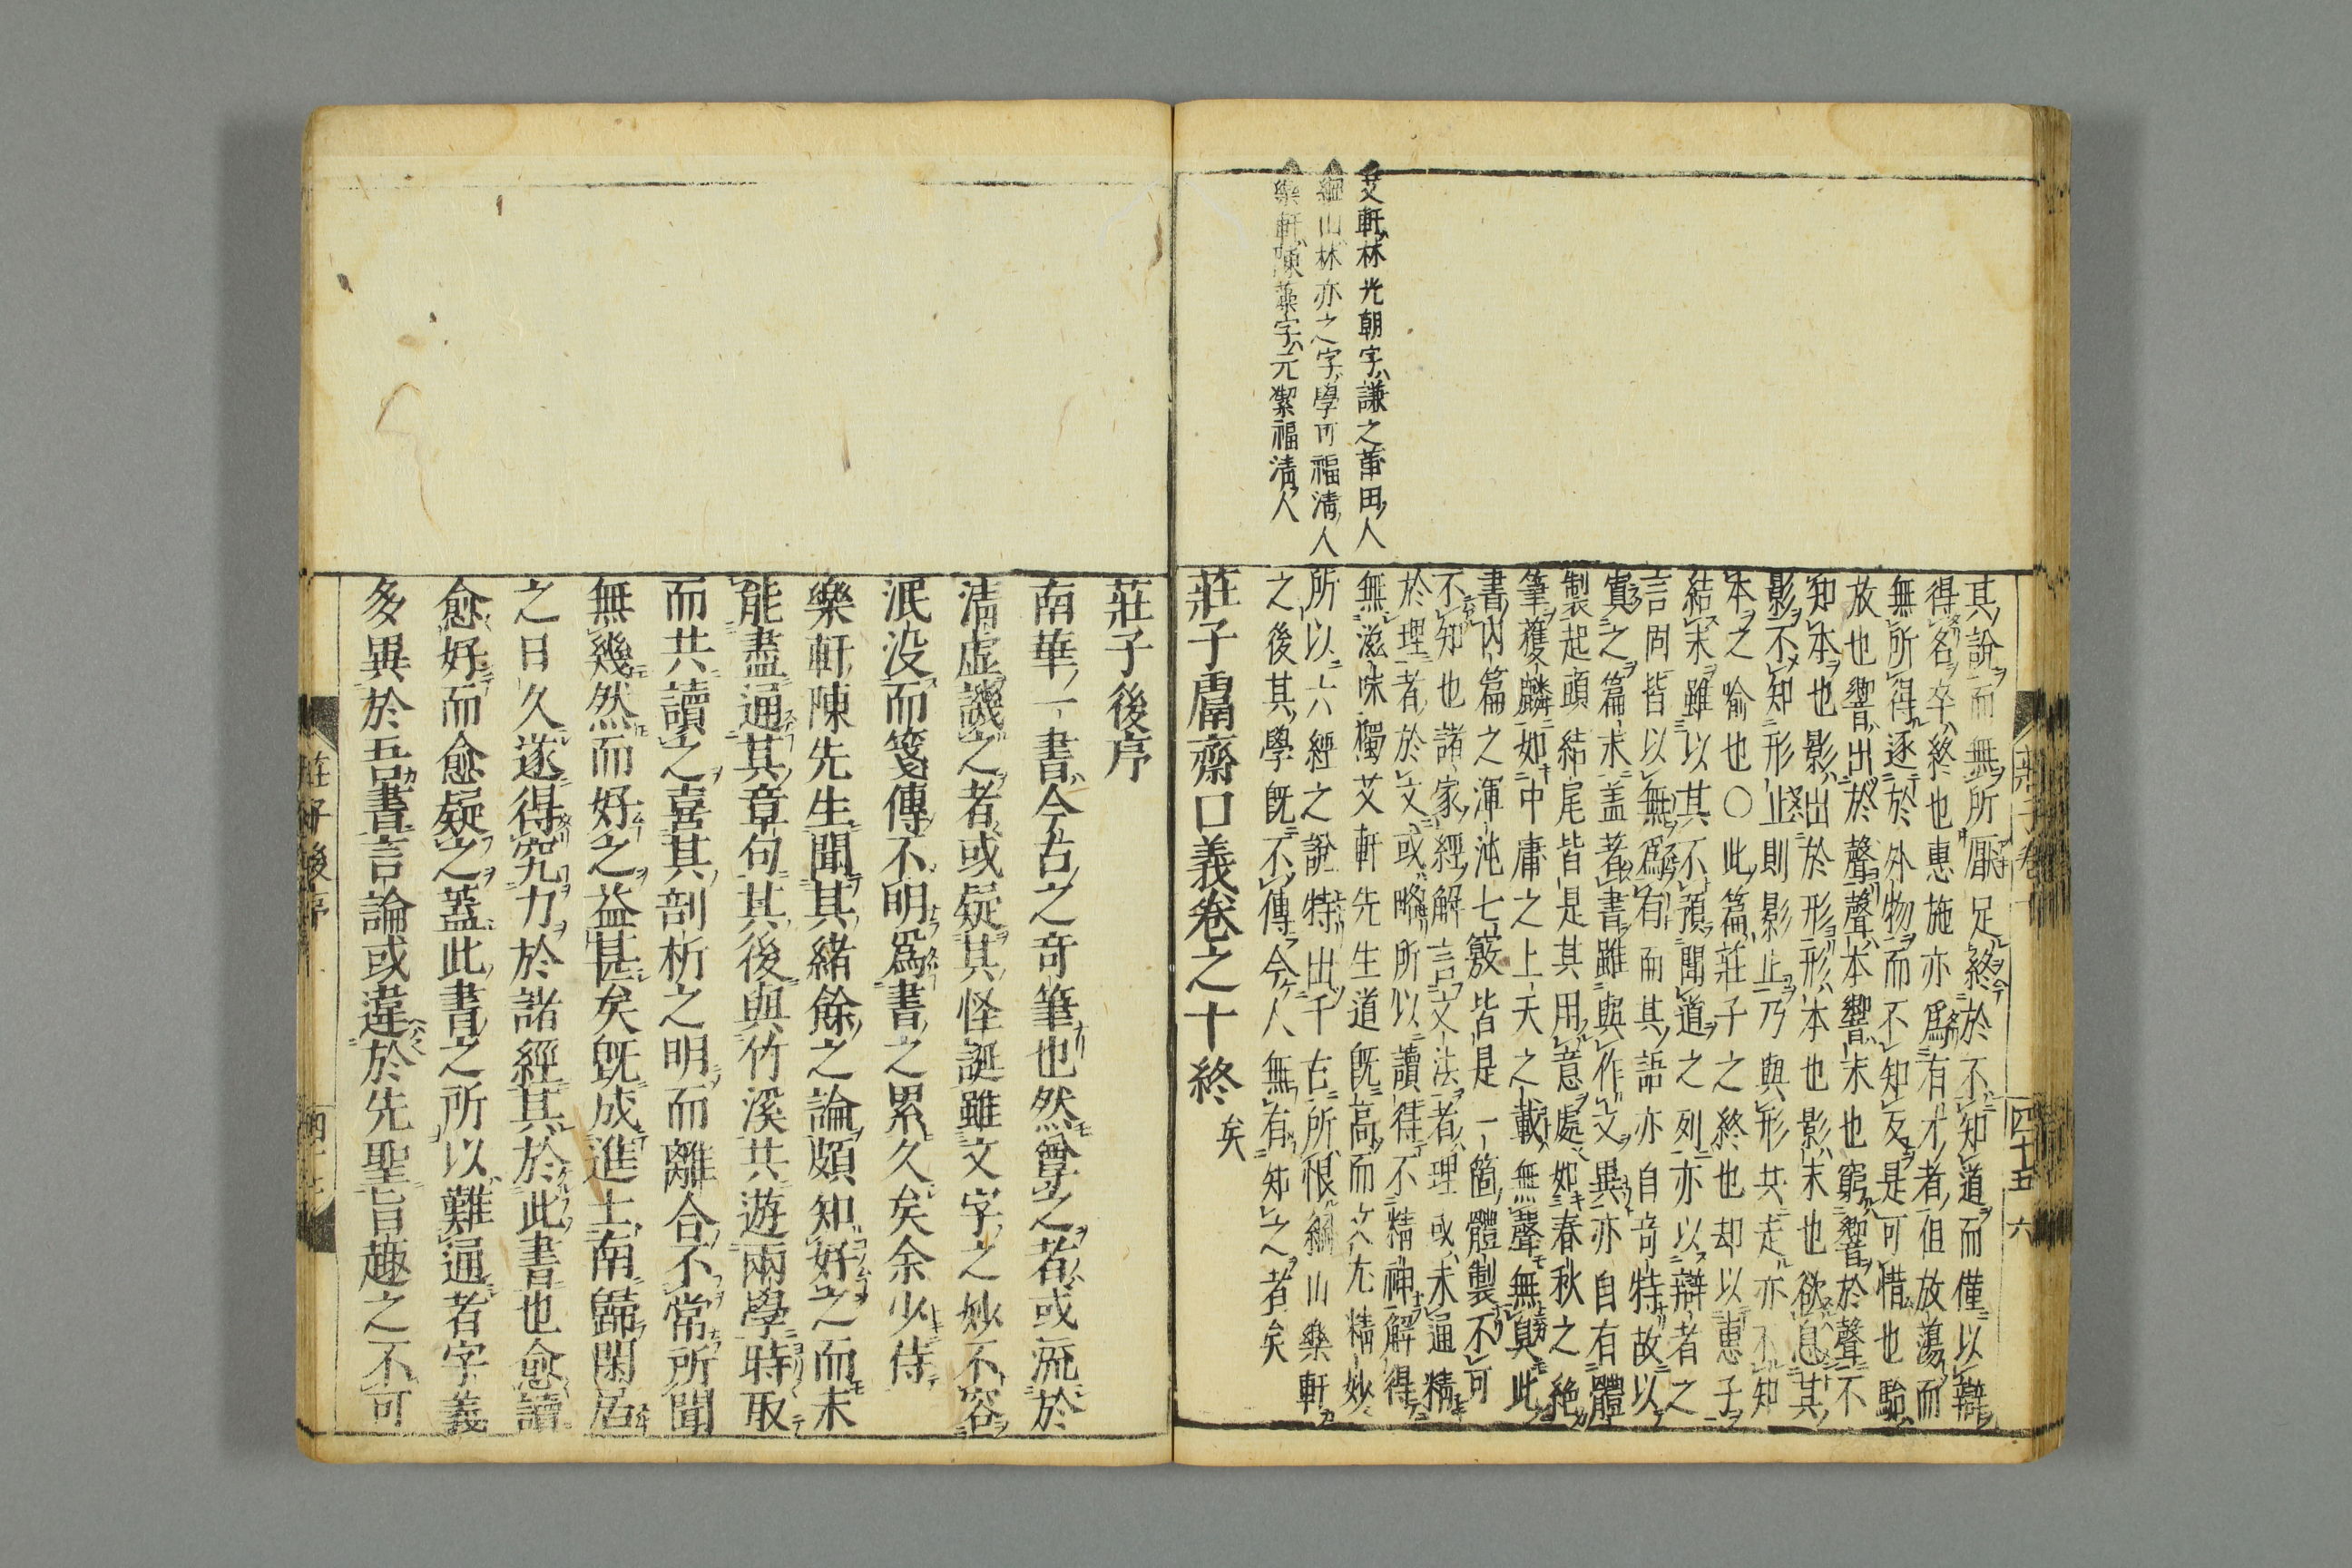 艾軒林光朝字謙之莆田人
網山林亦之字學可福清人
樂軒陳藻字元潔福清人
其說而無所厭足終於不知道而僅以辯
得名卒終也惠施亦爲有才者但放蕩而
無所得逐於外物而不知反是可惜也駘
放也響出於聲聲本響末也窮響於聲不
知本也影出於形形本也影末也欲息其
影不知形止則影止乃與形共走亦不知
本之喻也○此篇莊子之終也却以惠子
結末雖以其不預聞道之列亦以辯者之
言固皆以無爲有而其語亦自奇特故以
寘之篇末蓋著書雖與作文異亦自有體
製起頭結尾皆是其用意處如春秋之絕
筆獲麟如中庸之上天之載無聲無臭此
書內篇之渾沌七竅皆是一箇體製不可
不知也諸家經解言文法者理或未通精
於理者於文或略所以讀得不精神解得
無滋味獨艾軒先生道既高而文尤精妙
所以六經之說特出千古所恨綱山樂軒
之後其學既不傳今人無有知之者矣
矣
莊子鬳齋口義卷之十終
莊子卷十
四十五 六
莊子後序
南華一書今古之奇筆也然尊之者或流於
清虛譏之者或疑其怪誕雖文字之妙不容
泯没而箋傳不明爲書之累久矣余少侍
樂軒陳先生聞其緒餘之論頗知好之而未
能盡通其章句其後與竹溪共遊兩學時取
而共讀之喜其剖析之明而離合不常所聞
無幾然而好之益甚矣既成進士南歸閑居
之日久遂得究力於諸經其於此書也愈讀
愈好而愈疑之蓋此書之所以難通者字義
多異於吾書言論或違於先聖旨趣之不可
莊子後序